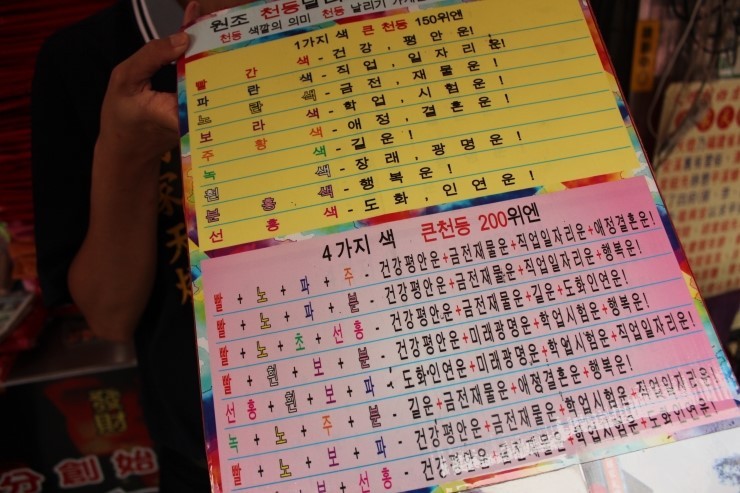 원조 천등날
천등 색깔의 의미 천등 날리기
1가지 색 큰 천등 150위엔
빨 간 색 - 건강, 평안 운!
파 란 색 - 직업, 일자리운!
노 란 색 - 금전, 재물운!
보 라 색 - 학업, 시험운!
주 황 색 - 애정, 결혼운!
녹 색 - 길운!
흰 색 - 장래, 광명운!
분 홍 색 - 행복운!
선 홍 색 - 도화, 인연운!
4가지 색 큰천등 200위엔
빨 + 노 + 파 + 주 - 건강평안운+금전재물운+직업일자리운+애정결혼운!
빨 + 노 + 파 + 분 - 건강평안운+금전재물운+직업일자리운+행복운!
빨 + 노 + 초 + 선홍 - 건강평안운+금전재물운+길운+도화인연운!
빨 + 흰 + 보 + 분 - 건강평안운+미래광명운+학업시험운+행복운!
선홍 + 흰 + 보 + 파 - 도화인연운+미래광명운+학업시험운+직업일자리운!
녹 + 노 + 주 + 분 - 길운+금전재물운+애정결혼운+행복운!
빨 + 노 + 보 + 파 - 건강평안운+금전재물운+학업시험운+직업일자리운!
빨 + 노 + 보 + 선홍 - 건강평안운+금전재물운+학업시험운+도화인연운!
發財
創始